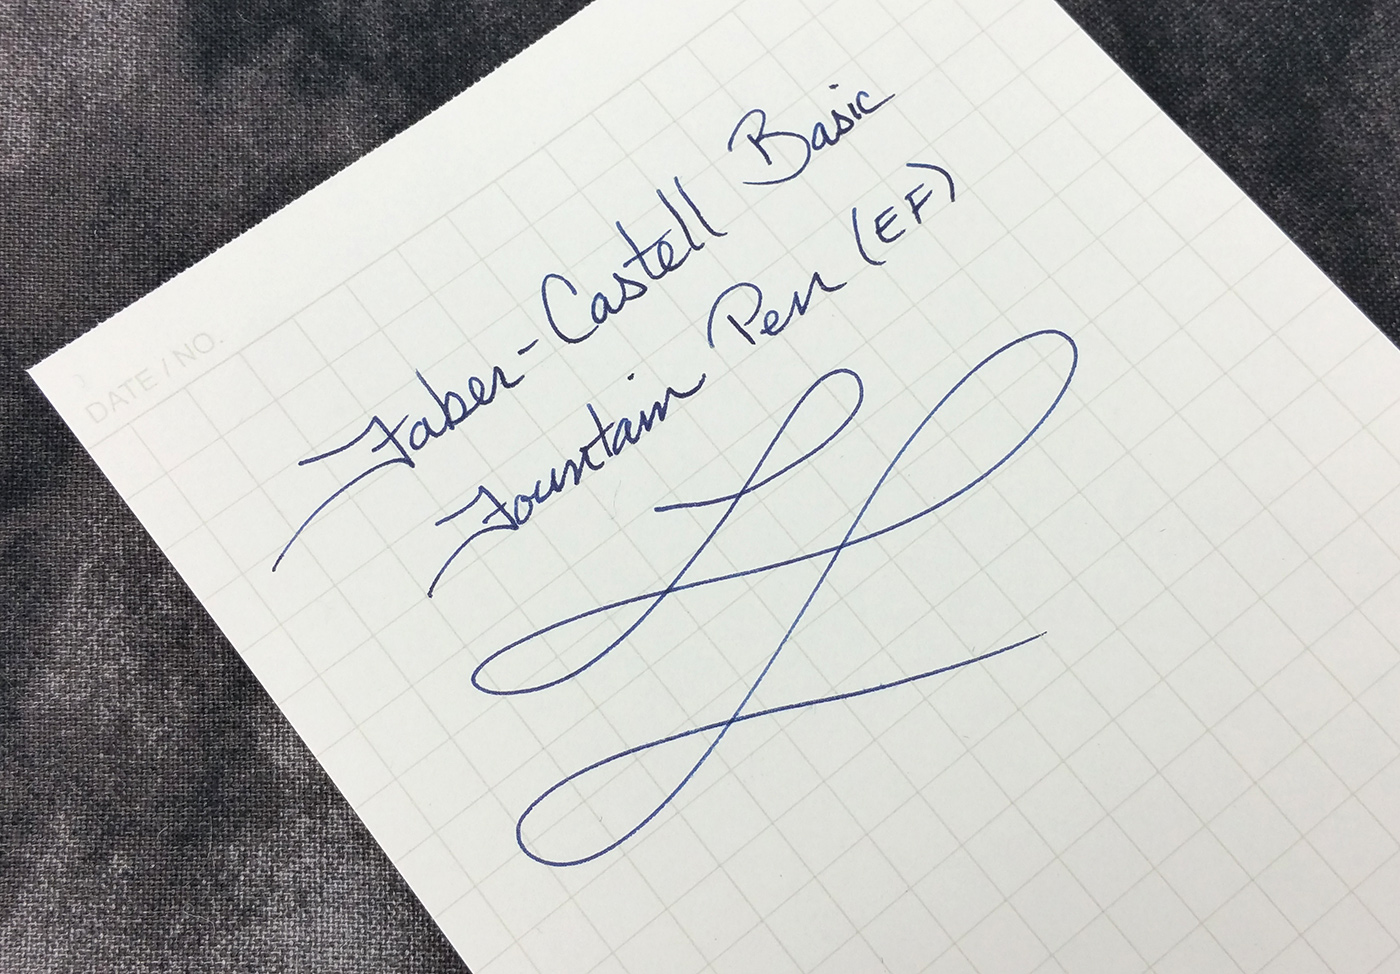 DATE / NO.
Faber-Castell Basic
Fountain Pen (EF)